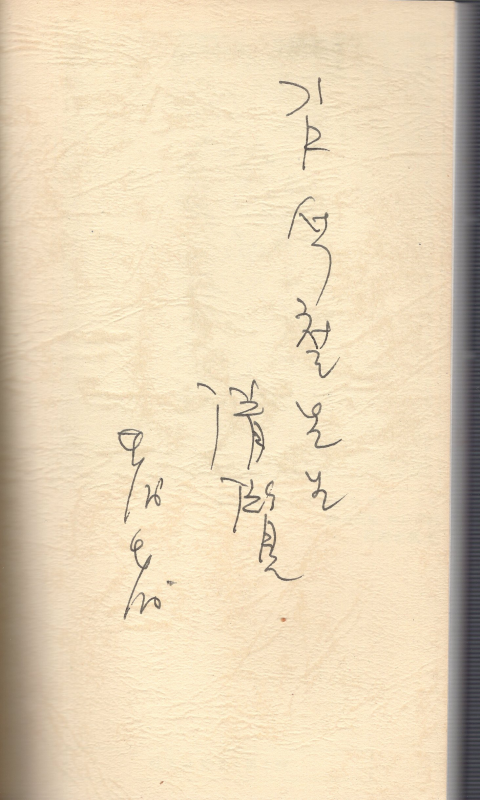 김석철선생
淸覽